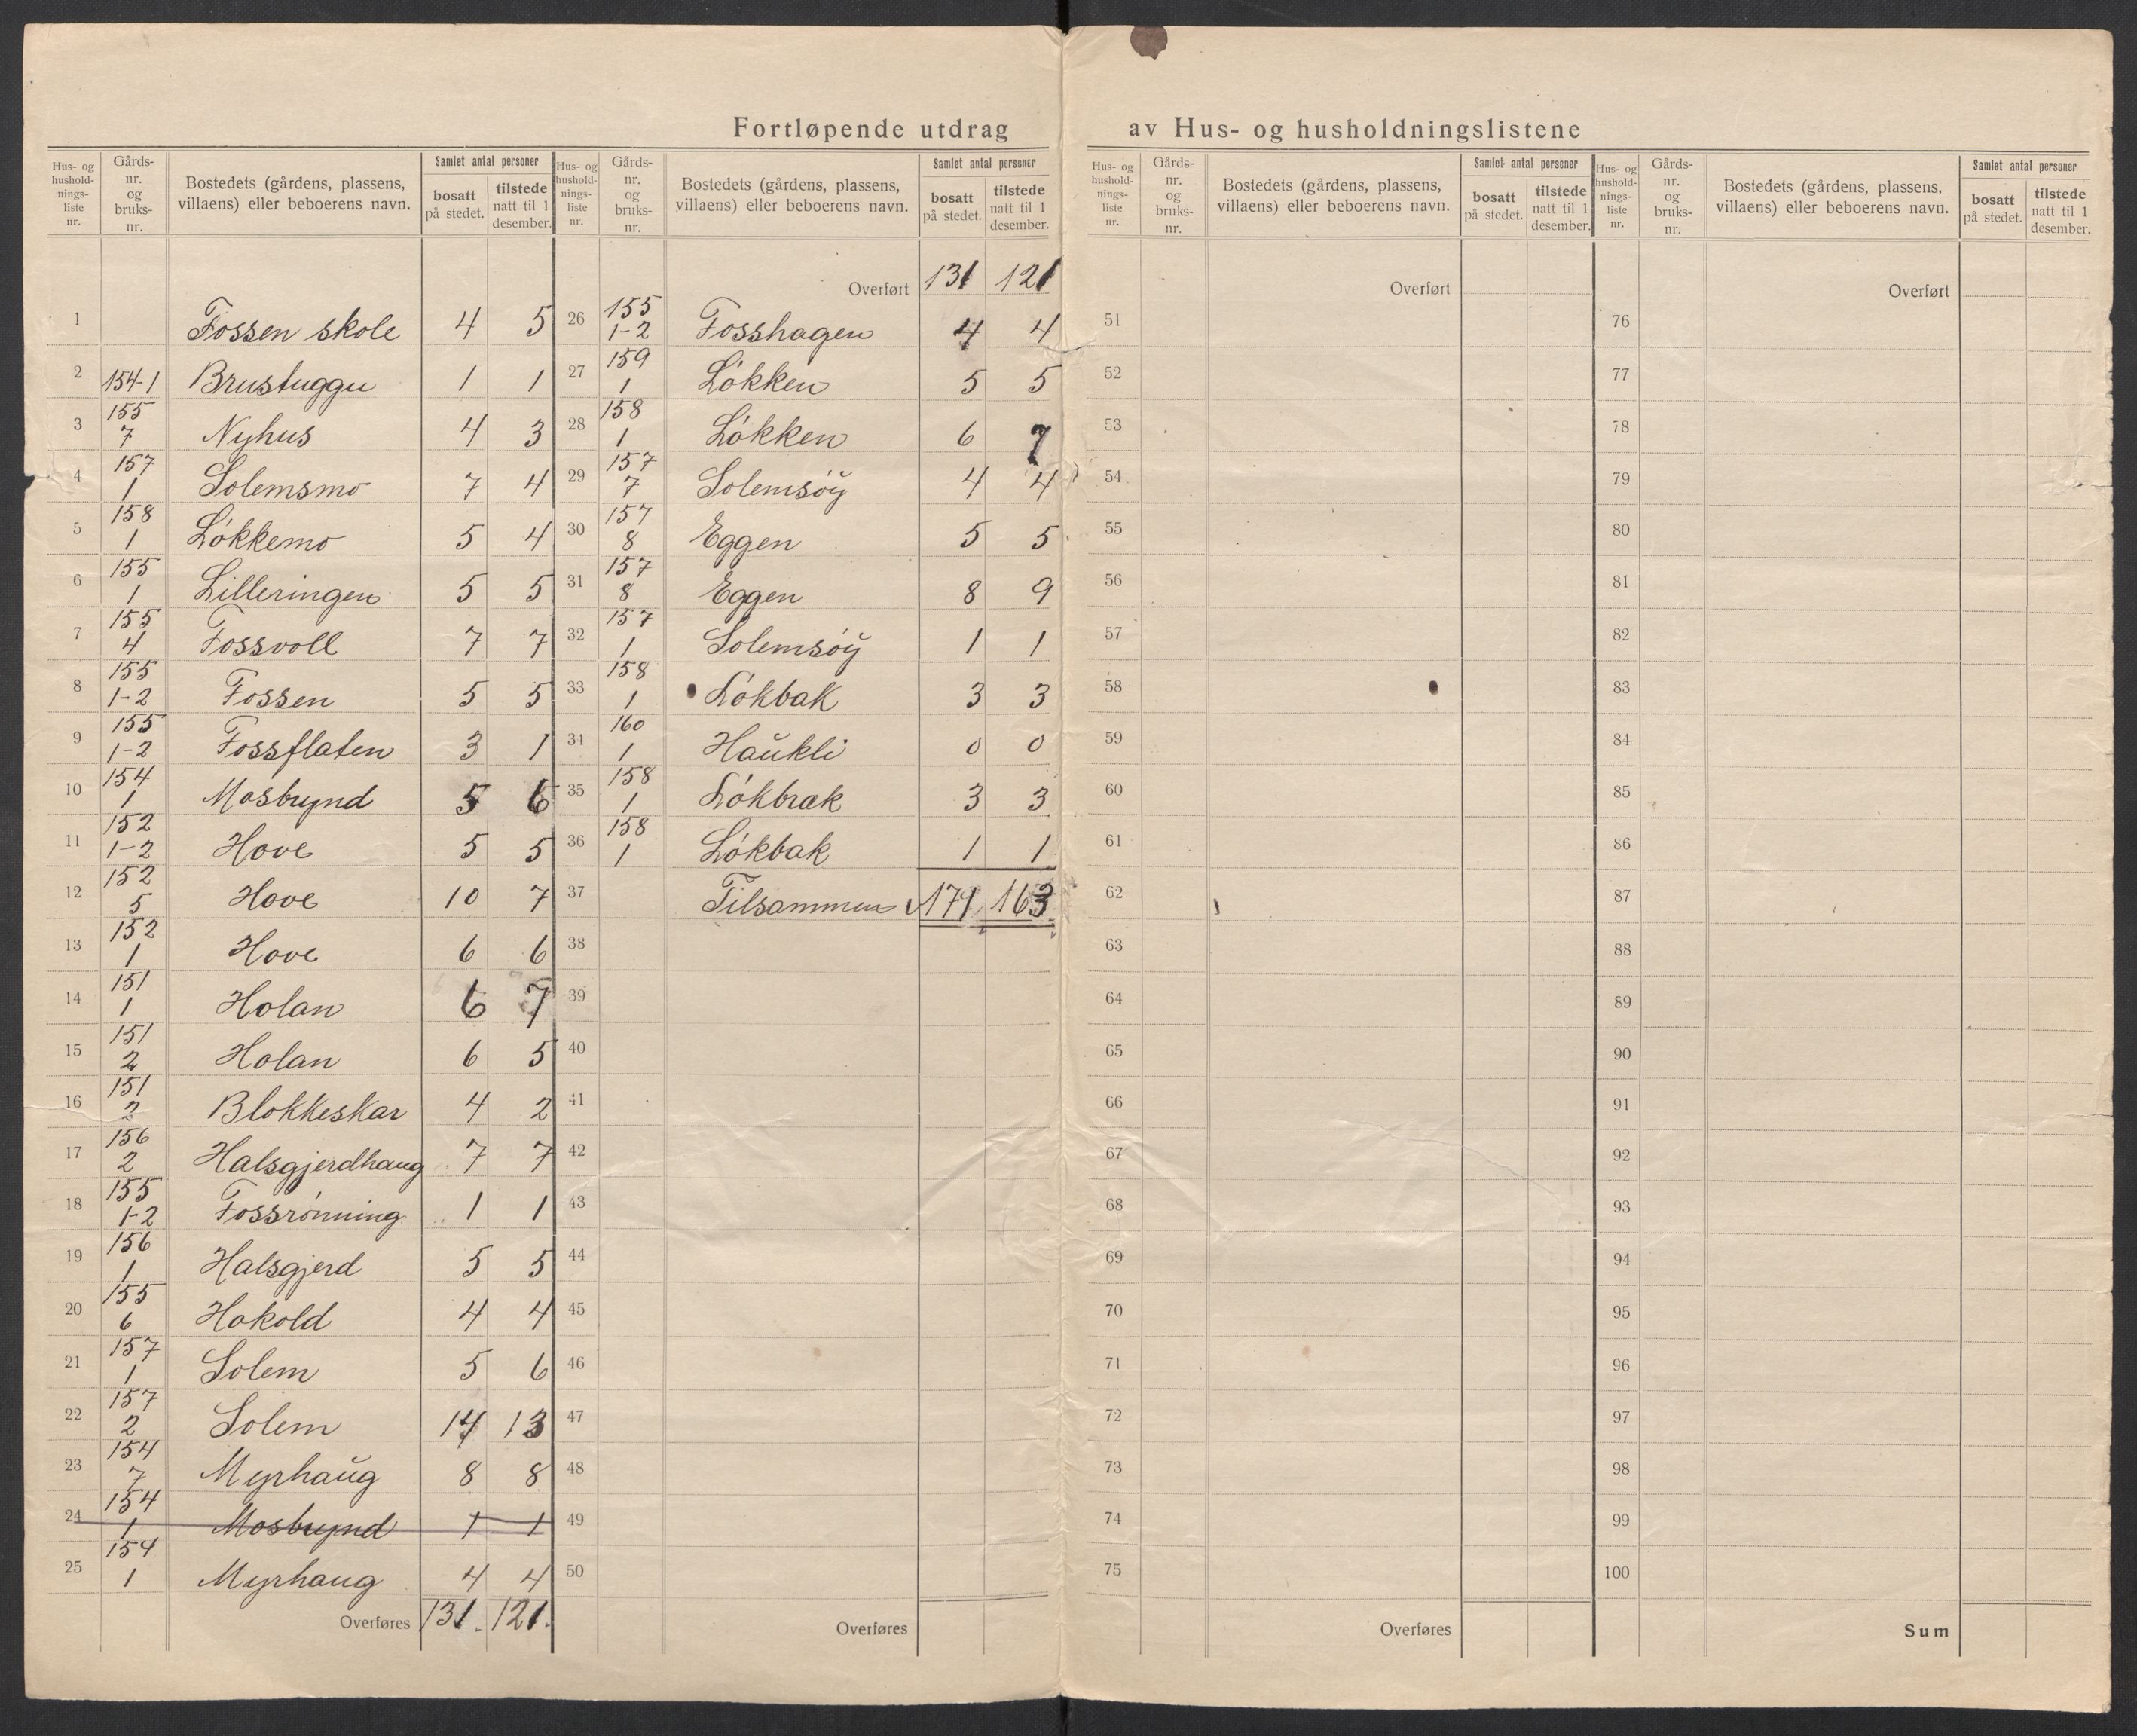 Fortløpende utdrag av Hus- og husholdningslistene
Hus- og hushold-nings-liste nr. | Gårds-nr. og bruks-nr. | Bostedets (gårdens, plassens, villaens) eller beboerens navn. | Samlet antal personer | bosatt på stedet. | tilstede natt til 1 desember.
1 Fossen skole 4 5
2 154-1 Brustuggu 1 1
3 155 7 Nyhus 4 3
4 157 1 Solemsmo 7 4
5 158 1 Løkkemo 5 4
6 155 1 Lilleringen 5 5
7 155 4 Fossvoll 7 7
8 155 1-2 Fossen 5 5
9 155 1-2 Fossflaten 3 1
10 154 1 Mosbrynd 5 6
11 152 1-2 Hove 5 5
12 152 5 Hove 10 7
13 152 1 Hove 6 6
14 151 1 Holan 6 7
15 151 2 Holan 6 5
16 151 2 Blokkeskar 4 2
17 156 2 Halsgjerdhaug 7 7
18 155 1-2 Fossrønning 1 1
19 156 1 Halsgjerd 5 5
20 155 6 Hakold 4 4
21 157 1 Solem 5 6
22 157 2 Solem 14 13
23 154 7 Myrhaug 8 8
24 154 1 Mosbrynd 1 1
25 154 1 Myrhaug 4 4
Overføres 131. 121.
Hus- og hushold-nings-liste nr. | Gårds-nr. og bruks-nr. | Bostedets (gårdens, plassens, villaens) eller beboerens navn. | Samlet antal personer | bosatt på stedet. | tilstede natt til 1 desember.
Overført 131 121
26 155 1-2 Fosshagen 4 4
27 159 1 Løkken 5 5
28 158 1 Løkken 6 7
29 157 7 Solemsøy 4 4
30 157 8 Eggen 5 5
31 157 8 Eggen 8 9
32 157 1 Solemsøy 1 1
33 158 1 Løkbak 3 3
34 160 1 Haukli 0 0
35 158 1 Løkbrak 3 3
36 158 1 Løkbak 1 1
37 Tilsammen 171 163
38
39
40
41
42
43
44
45
46
47
48
49
50
Overføres
Hus- og hushold-nings-liste nr. | Gårds-nr. og bruks-nr. | Bostedets (gårdens, plassens, villaens) eller beboerens navn. | Samlet antal personer | bosatt på stedet. | tilstede natt til 1 desember.
Overført
51
52
53
54
55
56
57
58
59
60
61
62
63
64
65
66
67
68
69
70
71
72
73
74
75
Overføres
Hus- og hushold-nings-liste nr. | Gårds-nr. og bruks-nr. | Bostedets (gårdens, plassens, villaens) eller beboerens navn. | Samlet antal personer | bosatt på stedet. | tilstede natt til 1 desember.
Overført
76
77
78
79
80
81
82
83
84
85
86
87
88
89
90
91
92
93
94
95
96
97
98
99
100
Sum